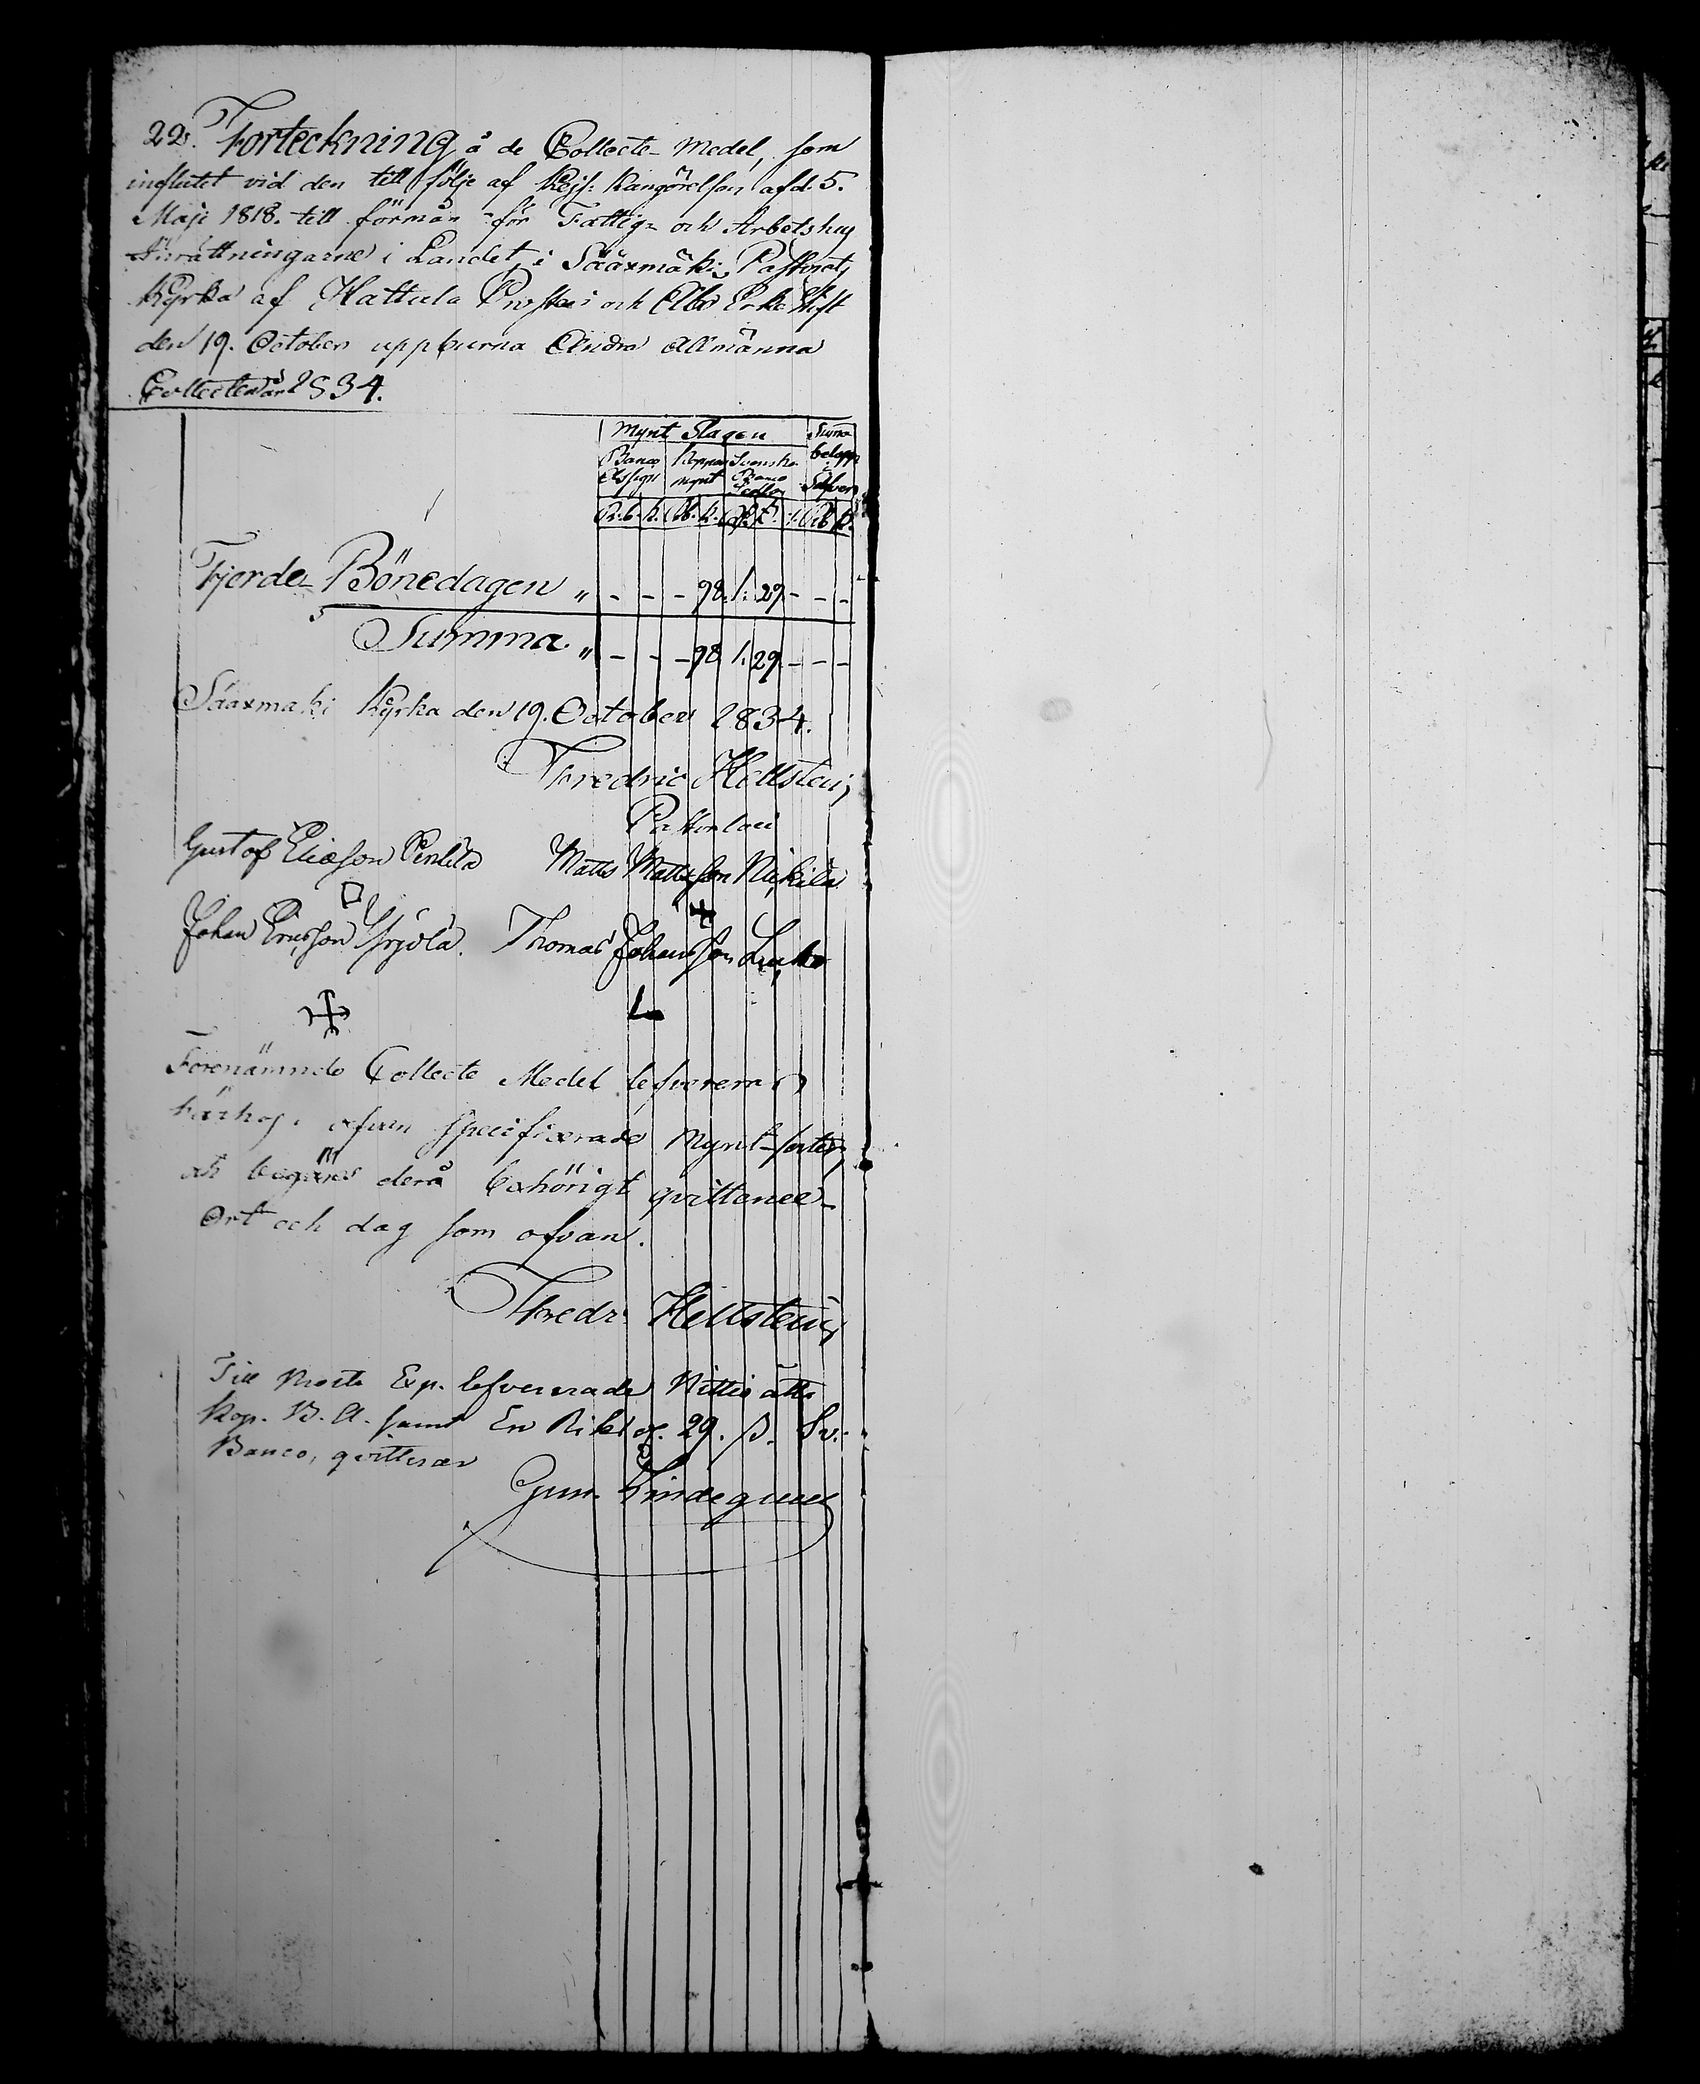 22. Forteckning å de Collecte-Medel, som
influtet vid den till följe af Kejs: Kungörelsen af d. 5.
Maji 1818. till förmån för Fattig- och Arbetshus
Inrättningarne i Landet, i Sääxmäki Pastorats
Kyrka af Hattula Prosteri och Åbo Erke Stift
den 19. October uppburna Andra Allmänna
Collecten år 1834.
Mynt Slagen Summa
Banco Koppar Svenska belopp
Assign mynt Banco i
Sedlar Silfver
R:b. k. Rb. k. Rb k.
Fjerde Bönedagen „ - - - 98. 1. 29 - - -
Summa „ - - - 98 1. 29 - - -
Sääxmäki Kyrka den 19. October 1834.
Fredric Hellsten,
Gustof Eliæson Matts Mattsson Nickilä
Johan Ericsson Yrjölä. Thomas Johansson
Förenämnde Collecte Medel lefvereras
härhos i ofvan specificerade Mynt-sorter,
och begäres derå behörigt qvittence.
Ort och dag som ofvan.
Fredr. Hellsten,
Till Prosts Exp. lefvererade Nittio åtta
Kop. B. A. samt En Riksd. 29. s. Sv.
Banco, qvitterar